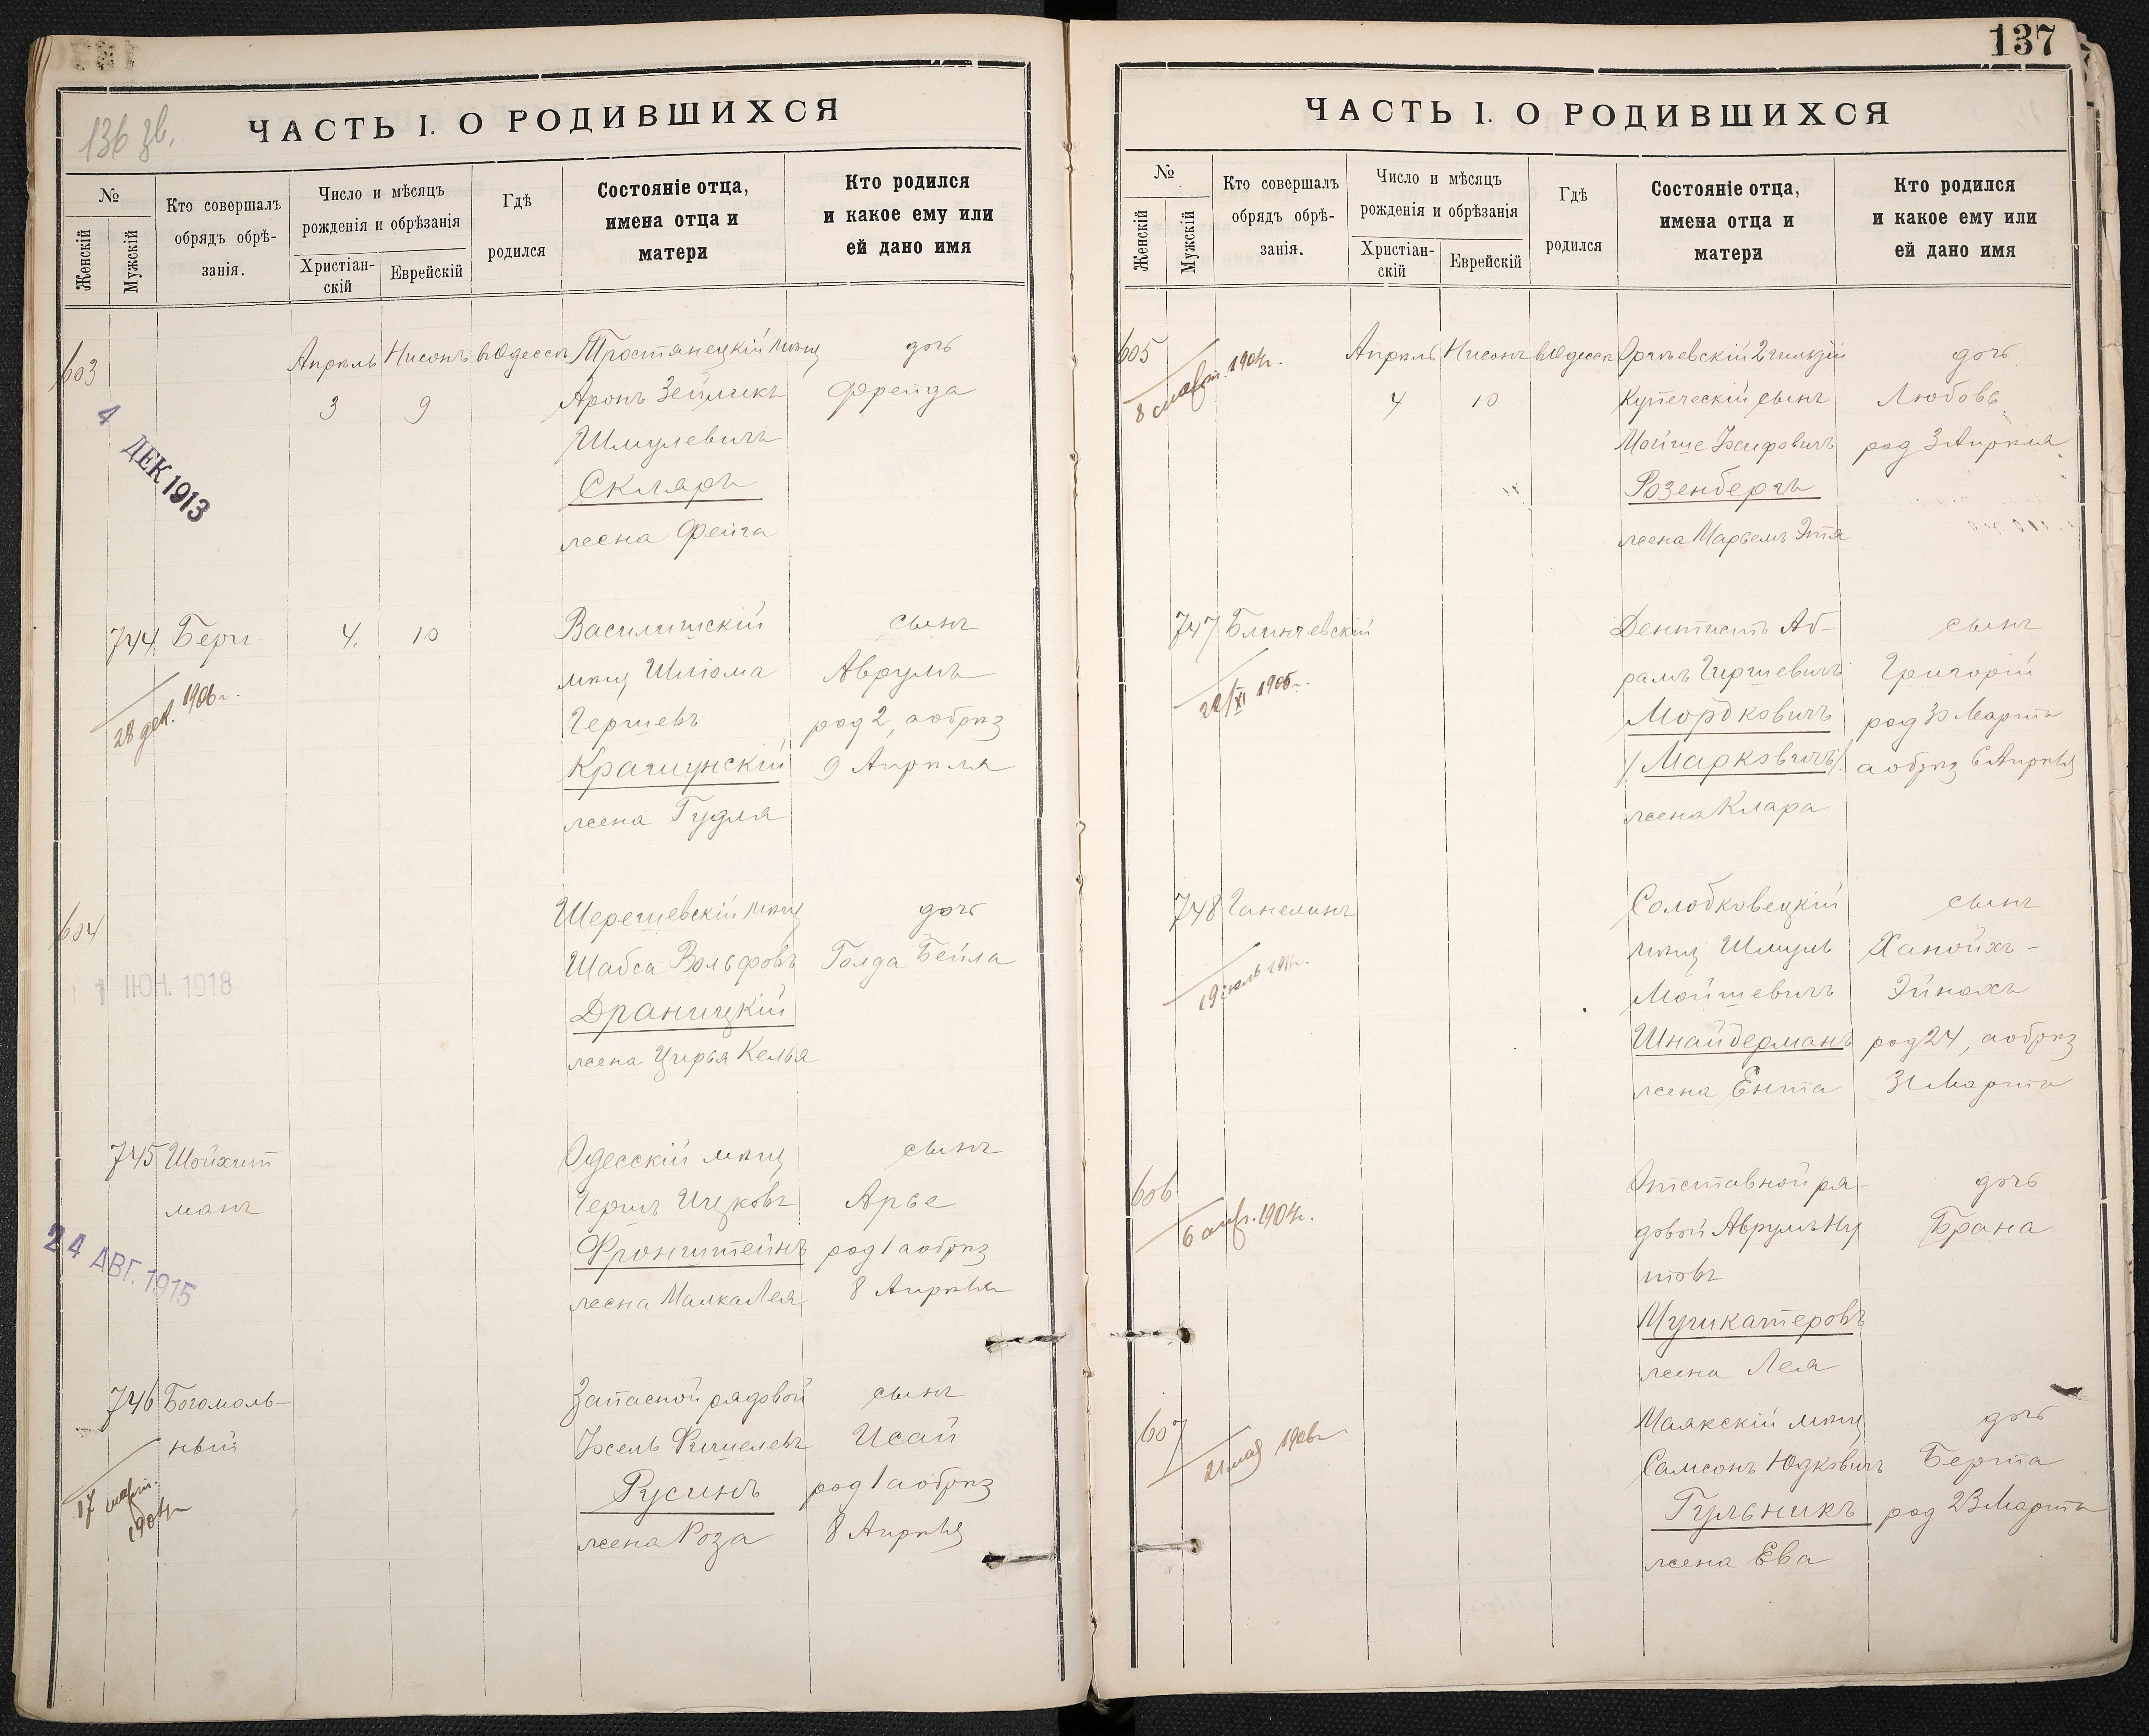 136 зв.
ЧАСТЬ I. О РОДИВШИХСЯ
№
Женскій
Мужскій
Кто совершалъ
обрядъ обрѣ-
занія.
Число и мѣсяцъ
рожденія и обрѣзанія
Христіан-
скій
Еврейскій
Гдѣ
родился
Состояніе отца,
имена отца и
матери
Кто родился
и какое ему или
ей дано имя
603 Апрѣль Нисонъ въ Одессѣ Тростянецкій мѣщ дочь
3 9 Аронъ Зейликъ Фрейда
Шмулевичъ
4 ДЕК 1913
Скляръ
жена Фейга
744 Бериг 4. 10 Василишскій сынъ
мѣщ Шліома Аврумъ
28 дек. 1906 г.
Гершевъ род 2, а обрѣз
9 Апрѣля
жена Гудля
604 Шерешевскій мѣщ дочь
Шабса Вольфовъ Голда Бейла
1 ІЮН. 1918
Драницкій
жена Цирья Кейля
745 Шойхит Одесскій мѣщ сынъ
манъ Гершъ Ицковъ Арье
24 АВГ. 1915
Фронштейнъ род 1 а обрѣз
жена Малка Лея 8 Апрѣля
746 Богомоль- Запасной рядовой сынъ
ный Іосель Фишелевъ Исай
17 март. 1904 г.
Русинъ род 1 а обрѣз
жена Роза 8 Апрѣля
137
ЧАСТЬ I. О РОДИВШИХСЯ
№
Женскій
Мужскій
Кто совершалъ
обрядъ обрѣ-
занія.
Число и мѣсяцъ
рожденія и обрѣзанія
Христіан-
скій
Еврейскій
Гдѣ
родился
Состояніе отца,
имена отца и
матери
Кто родился
и какое ему или
ей дано имя
605 Апрѣль Нисонъ въ Одессѣ Оргѣевскій 2 гильдіи дочь
4 10 Купеческій сынъ Любовь
1904 г.
Мойше Іосифовичъ род 3 Апрѣля
Розенбергъ
жена Марьемъ Этя
747 Блинчевскій Дентистъ Аб- сынъ
рамъ Гиршевичъ Григорій
Мордковичъ род 30 Марта
/Марковичъ/ а обрѣз 6 Апрѣля
жена Клара
748 Ганелинъ Солобковецкій сынъ
мѣщ Шмуль Ханойхъ-
19 іюль 1911 г.
Мойшевичъ Эйнохъ
Шнайдерманъ род 24, а обрѣз
жена Ента 31 Марта
606 Отставной ря- дочь
довой Аврумъ Ну Брана
товъ
Мучикатеровъ
жена Лея
607 Маякскій мѣщ дочь
21 мая 1906 г.
Самсонъ Юдковичъ Берта
Гульникъ род 23 Марта
жена Ева